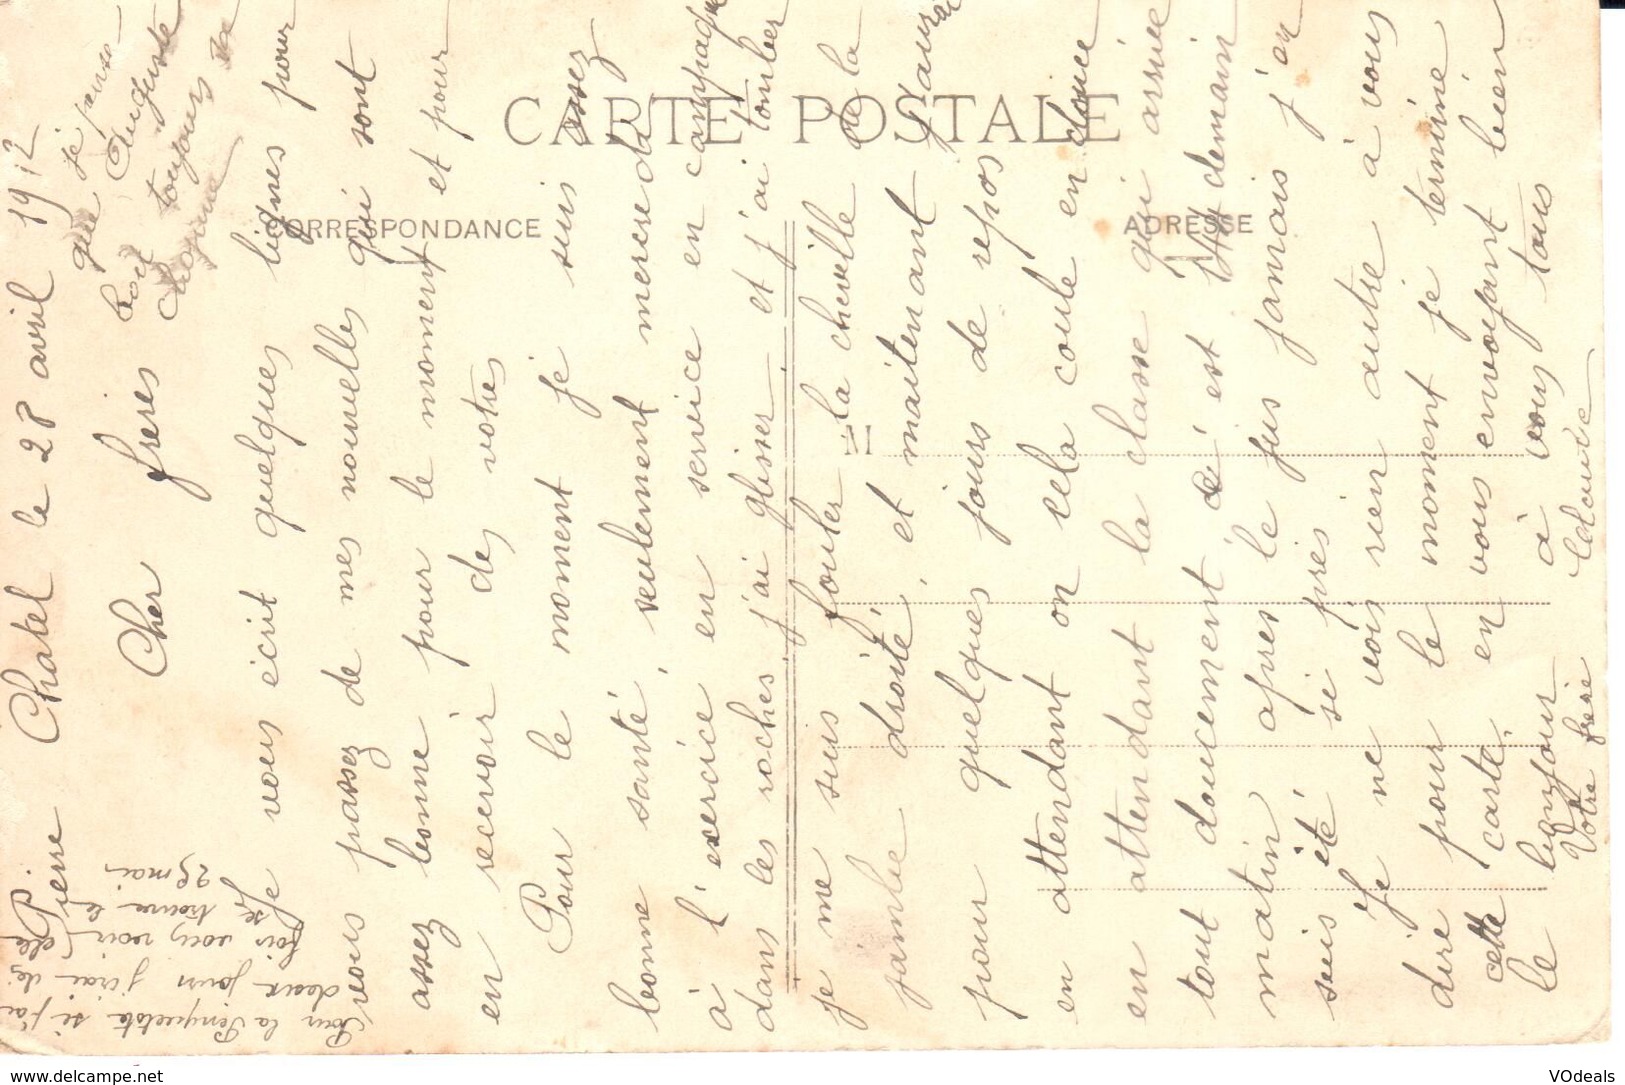 Pierre Chatel le 28 avril 1912
Cher freres
Je vous écrit quelques lignes pour
vous passez de mes nouvelles qui sont
assez bonne pour le momment et pour
en recevoir des votres
Pour le moment je suis assez
bonne santé, seulement mercredi
à l'exercice en service en campagne
dans les roches j'ai glisser et j'ai tomber
je me suis fouler la cheville de la
jambe droite, et maitenant j'aurai
pour quelques jours de repos
en attendant on cela coule en douce
en attendant la classe qui arrive
tout doucement cé est 144 demain
matin apres le jus jamais j'en
suis été si pres
Je ne vois rien autre à vous
dire pour le moment je termine
cette carte en vous envoyant bien
le bonjour à vous tous
Votre frere
que je pense
Auguste
toujours sa
Pour la Penquelote si j'ai
deux jours j'irai dé
fois vous voir elle
se trouve le
28 mai
CARTE POSTALE
CORRESPONDANCE
ADRESSE
M
www.delcampe.net
VOdeals